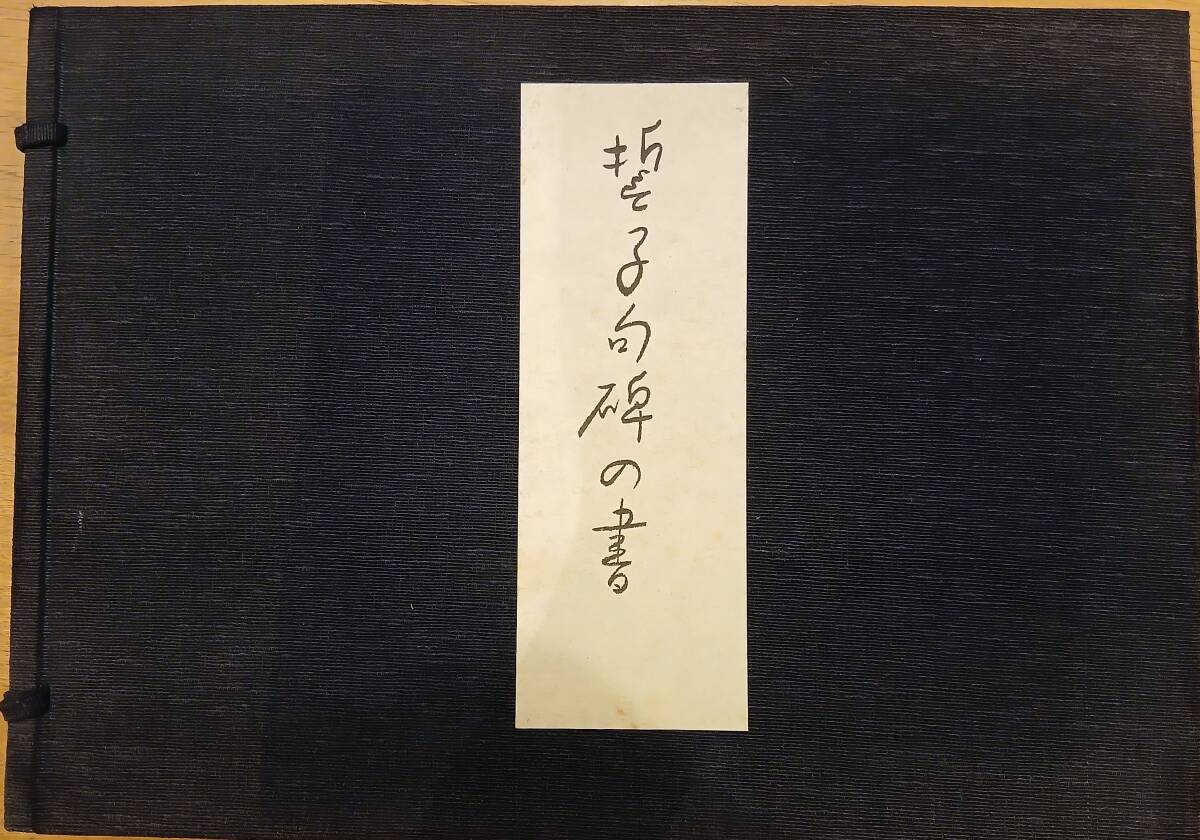 誓子句碑の書